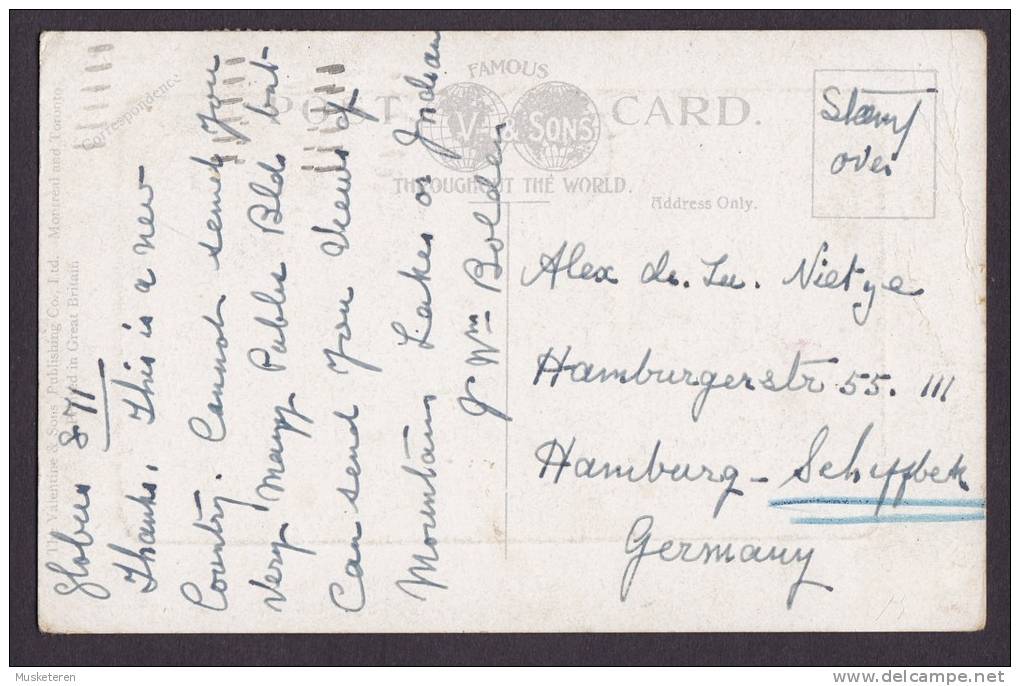 The Valentine & Sons Publishing Co., Ltd. Montreal and Toronto.
Printed in Great Britain
Correspondence
POST CARD.
FAMOUS
V. & SONS
THROUGHOUT THE WORLD.
Address Only.
Stamp
over
Globus 871
Thanks. This is a new
Country. Cannot send you
very many Public Blds but
Can send you views of
Mountans Lakes or Indian
Wm Bolder
Alex de. Nietye
Hamburgerstr 55. III
Hamburg - Schiffbek
Germany
Musketeren
delcampe.net